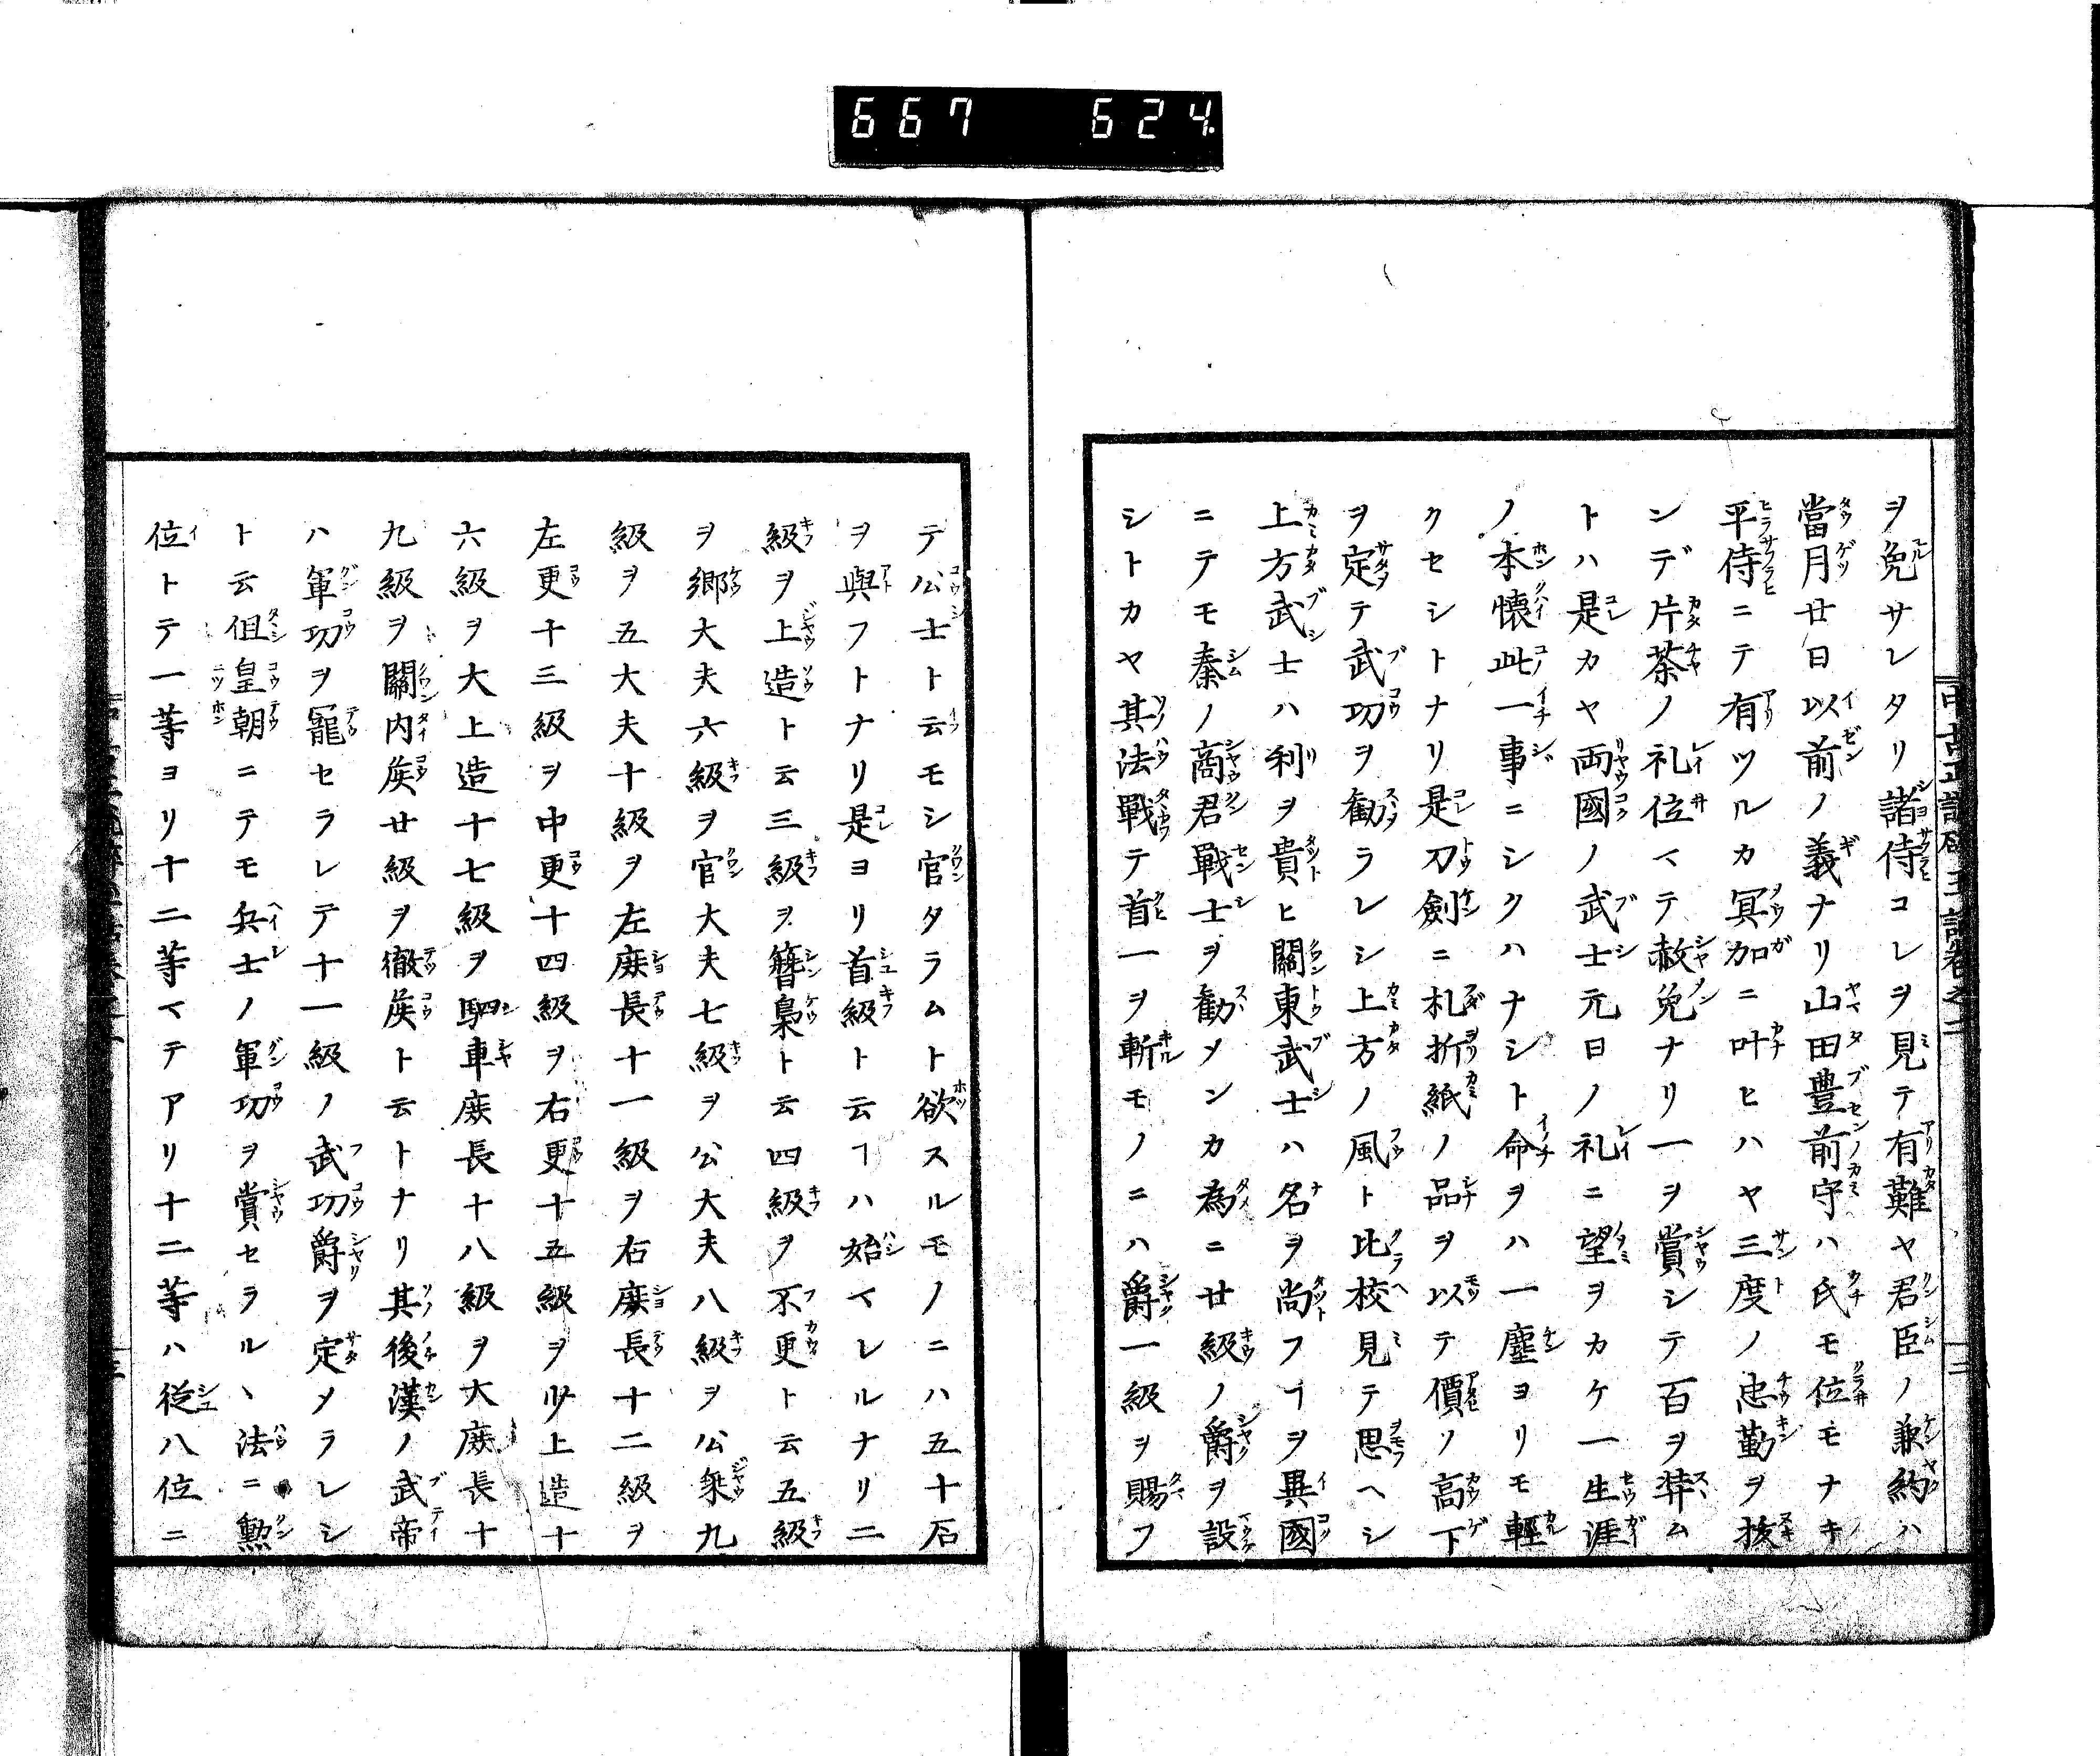 667 624
ヲ免サレタリ諸侍コレヲ見テ有難ヤ君臣ノ兼約ハ
當月廿日以前ノ義ナリ山田豊前守ハ氏モ位モナキ
平侍ニテ有ツルカ冥加ニ叶ヒハヤ三度ノ忠勤ヲ抜
ンデ片茶ノ礼位マテ赦免ナリ一ヲ賞シテ百ヲ奨ム
トハ是カヤ両國ノ武士元日ノ礼ニ望ヲカケ一生涯
ノ本懐此一事ニシクハナシト命ヲハ一塵ヨリモ輕
クセシトナリ是刀劍ニ札折紙ノ品ヲ以テ價ノ高下
ヲ定テ武功ヲ勧ラレシ上方ノ風ト比校見テ思ヘシ
上方武士ハ利ヲ貴ヒ關東武士ハ名ヲ尚フヿヲ異國
ニテモ秦ノ商君戰士ヲ勧メンカ為ニ廿級ノ爵ヲ設
シトカヤ其法戰テ首一ヲ斬モノニハ爵一級ヲ賜フ
テ公士ト云モシ官タラムト欲スルモノニハ五十石
ヲ與フトナリ是ヨリ首級ト云ヿハ始マレルナリ二
級ヲ上造ト云三級ヲ簪梟ト云四級ヲ不更ト云五級
ヲ郷大夫六級ヲ官大夫七級ヲ公大夫八級ヲ公乗九
級ヲ五大夫十級ヲ左庶長十一級ヲ右庶長十二級ヲ
左更十三級ヲ中更十四級ヲ右更十五級ヲ少上造十
六級ヲ大上造十七級ヲ駟車庶長十八級ヲ大庶長十
九級ヲ關内侯廿級ヲ徹侯ト云トナリ其後漢ノ武帝
ハ軍功ヲ寵セラレテ十一級ノ武功爵ヲ定メラレシ
ト云伹皇朝ニテモ兵士ノ軍功ヲ賞セラルヽ法ニ勲
位トテ一等ヨリ十二等マテアリ十二等ハ従八位ニ